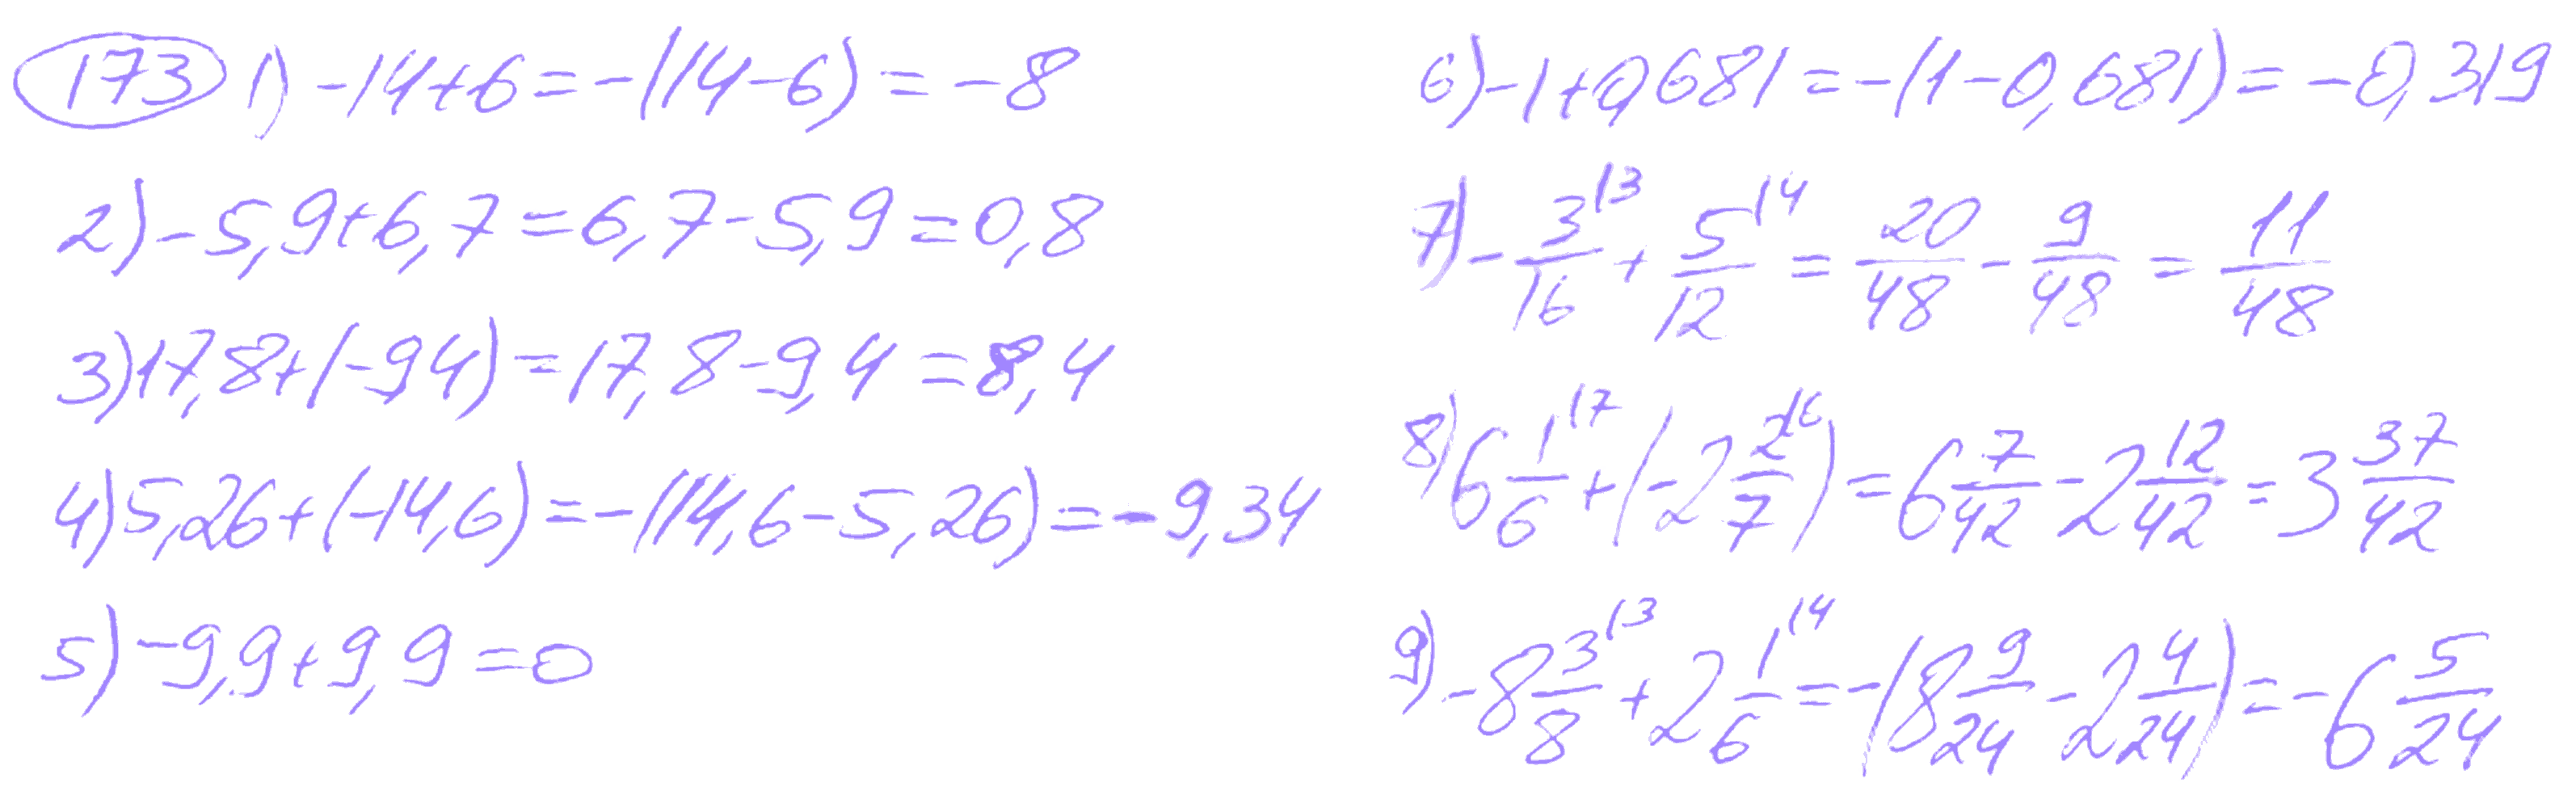 173 1) -14+6=-(14-6)=-8
2) -5,9+6,7=6,7-5,9=0,8
3) 17,8+(-9,4)=17,8-9,4=8,4
4) 5,26+(-14,6)=-(14,6-5,26)=-9,34
5) -9,9+9,9=0
6) -1+0,681=-(1-0,681)=-0,319
7) -3/16 (3 + 5/12 (4 = 20/48 - 9/48 = 11/48
8) 6 1/6 (7 + (-2 2/7 (6) = 6 7/42 - 2 12/42 = 3 37/42
9) -8 3/8 (3 + 2 1/6 (4 = -(8 9/24 - 2 4/24) = -6 5/24